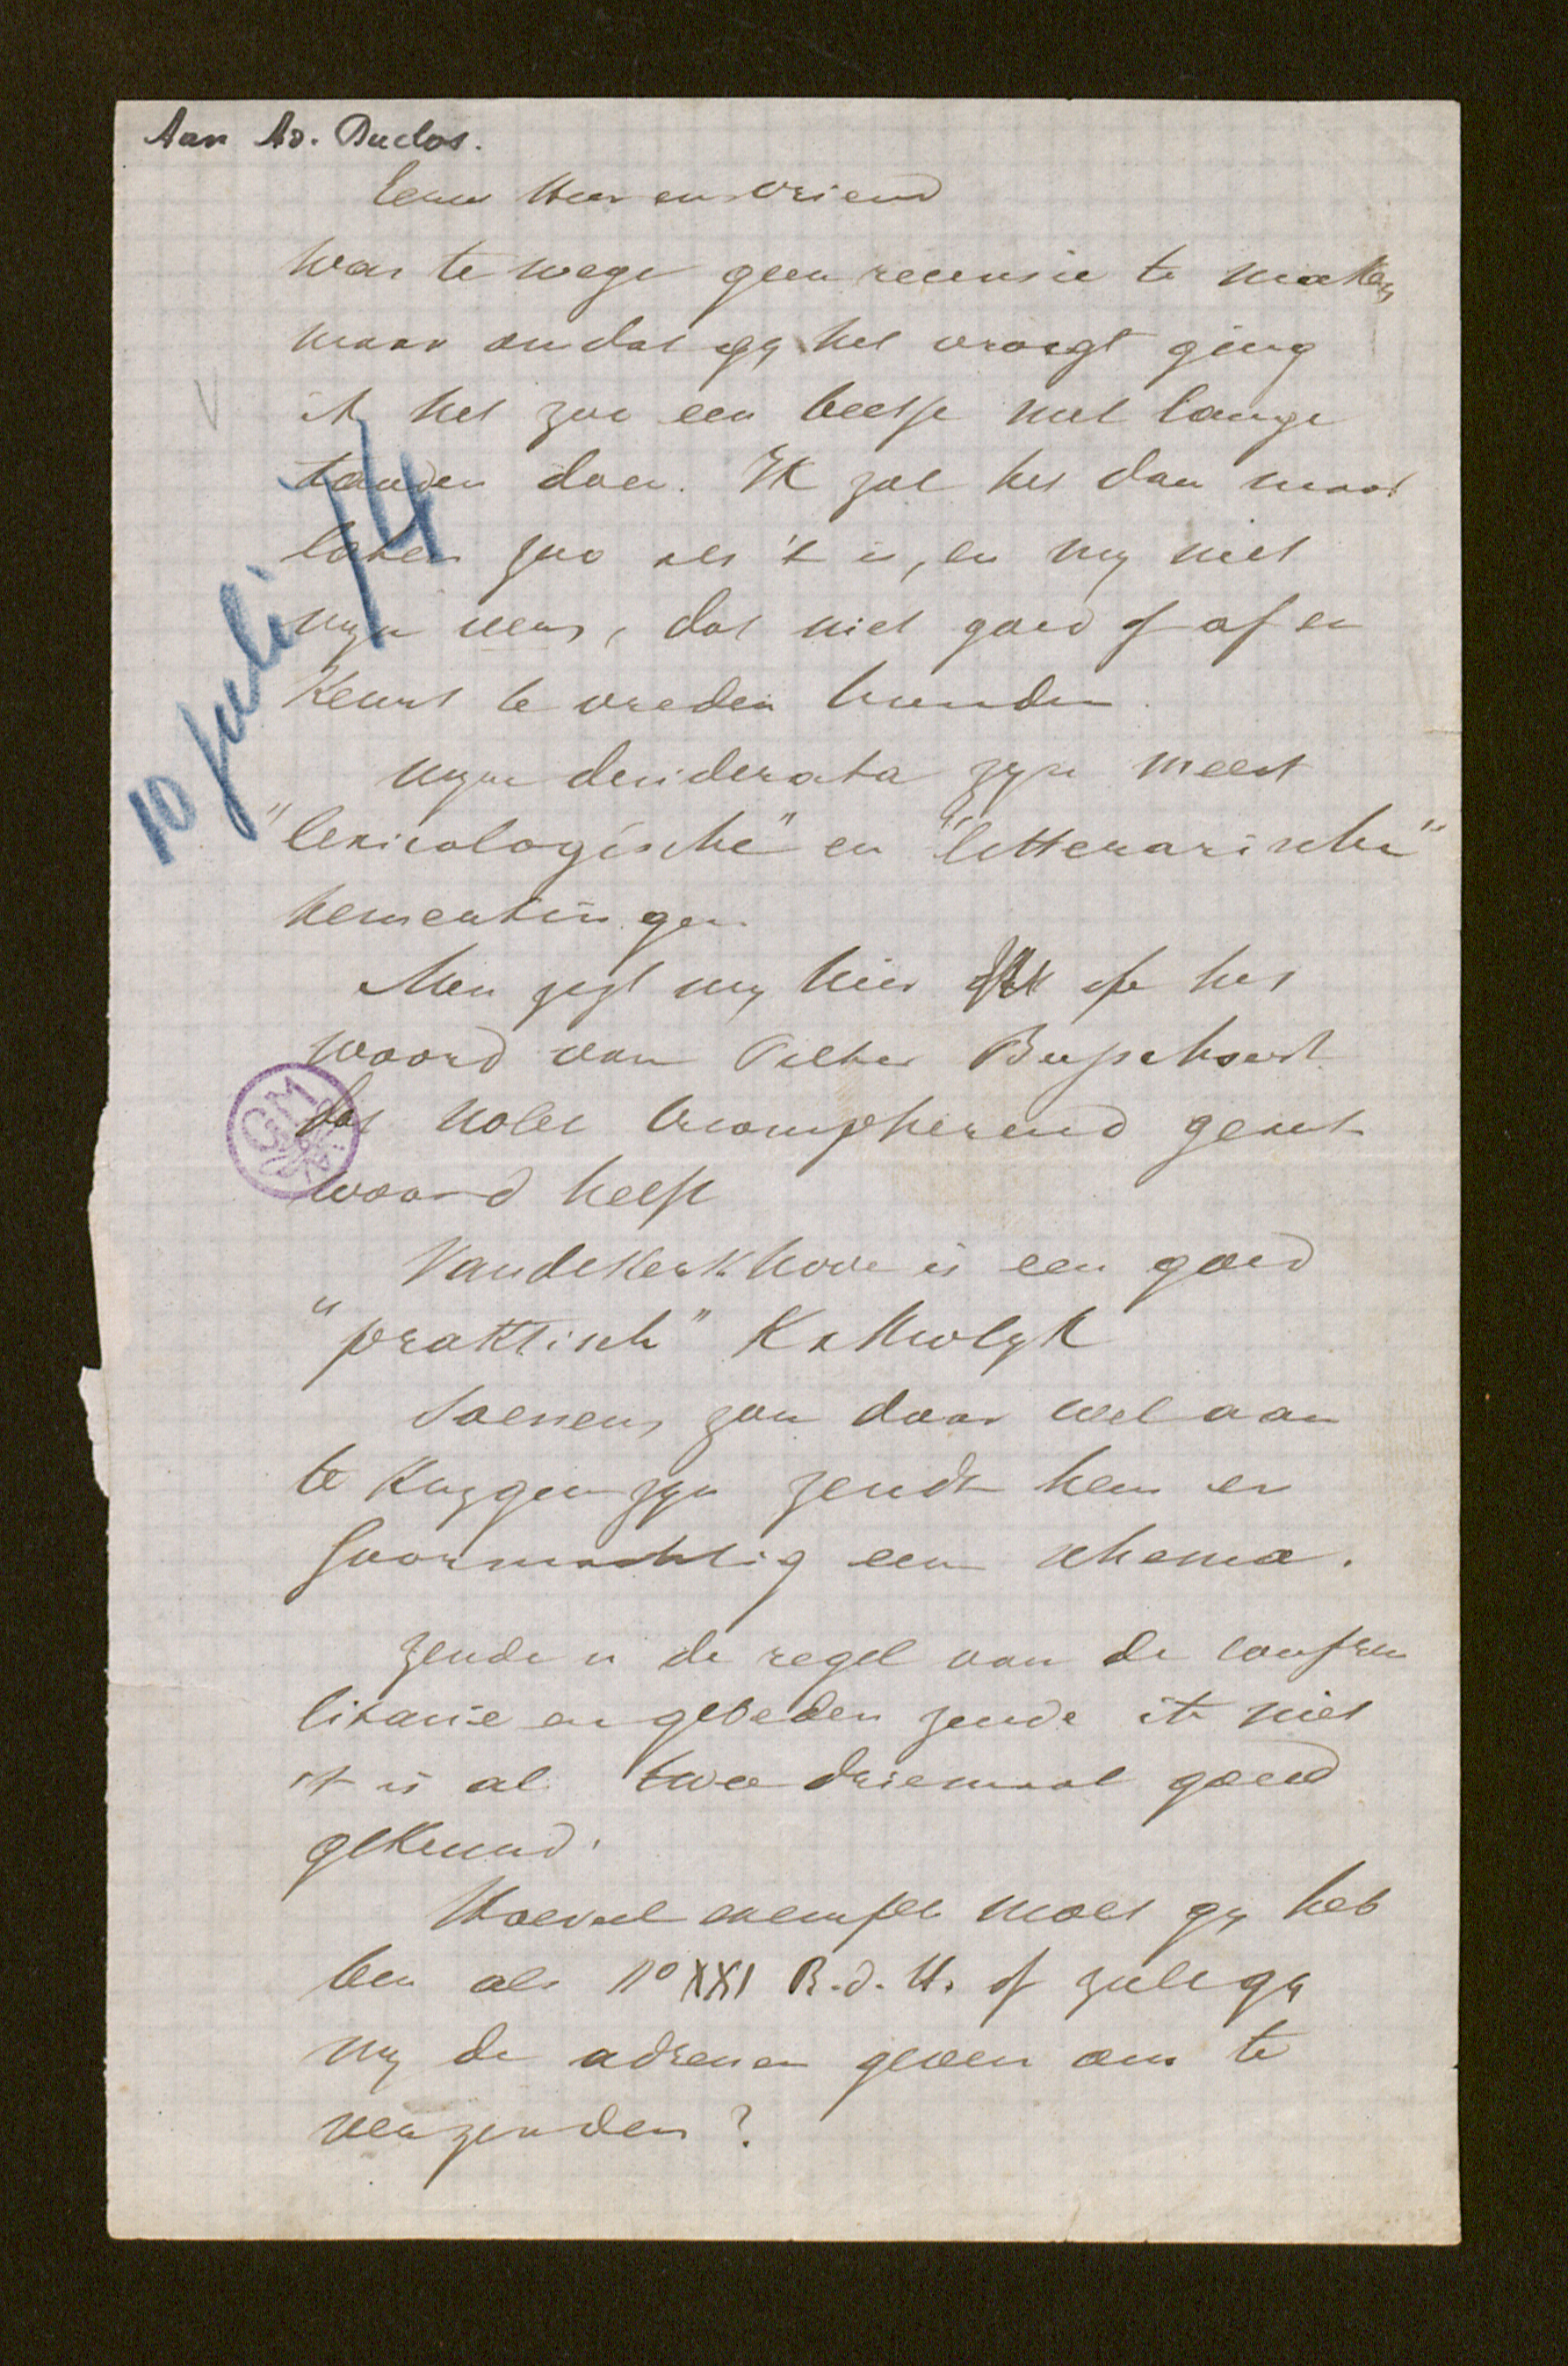 Aan Ad. Duclos.
Eerw Heer en vriend
was te wege geen recensie te maken
maar omdat gy het vraegt ging
ik het zoo een beetje met lange
tanden doen. Ik zal het dan maar
laten zoo als 't is, en my met
myn mens, dat niet goed of af en
keurt te vreden houden.
10 juli 74
myn desiderata zyn meest
"lexicologische" en "letterarische"
bemerkingen.
Men zegt my hier op het
woord van Pelter Busschaert
dat Nolet triompherend geant
woord heeft
Vandekerkhove is een goed
"praktisch" Katholyk
Soenens zou daar wel aan
te krygen zyn zendt hem er
een schema.
zende u de regel van de confren
litanie en gebeden zende ik niet
't is al twee driemaal goed
gekeurd.
Hoeveel exempl. moet gy heb
ben als No XXI R.d.H. of zult gy
my de adressen geven om te
verzenden?
GM